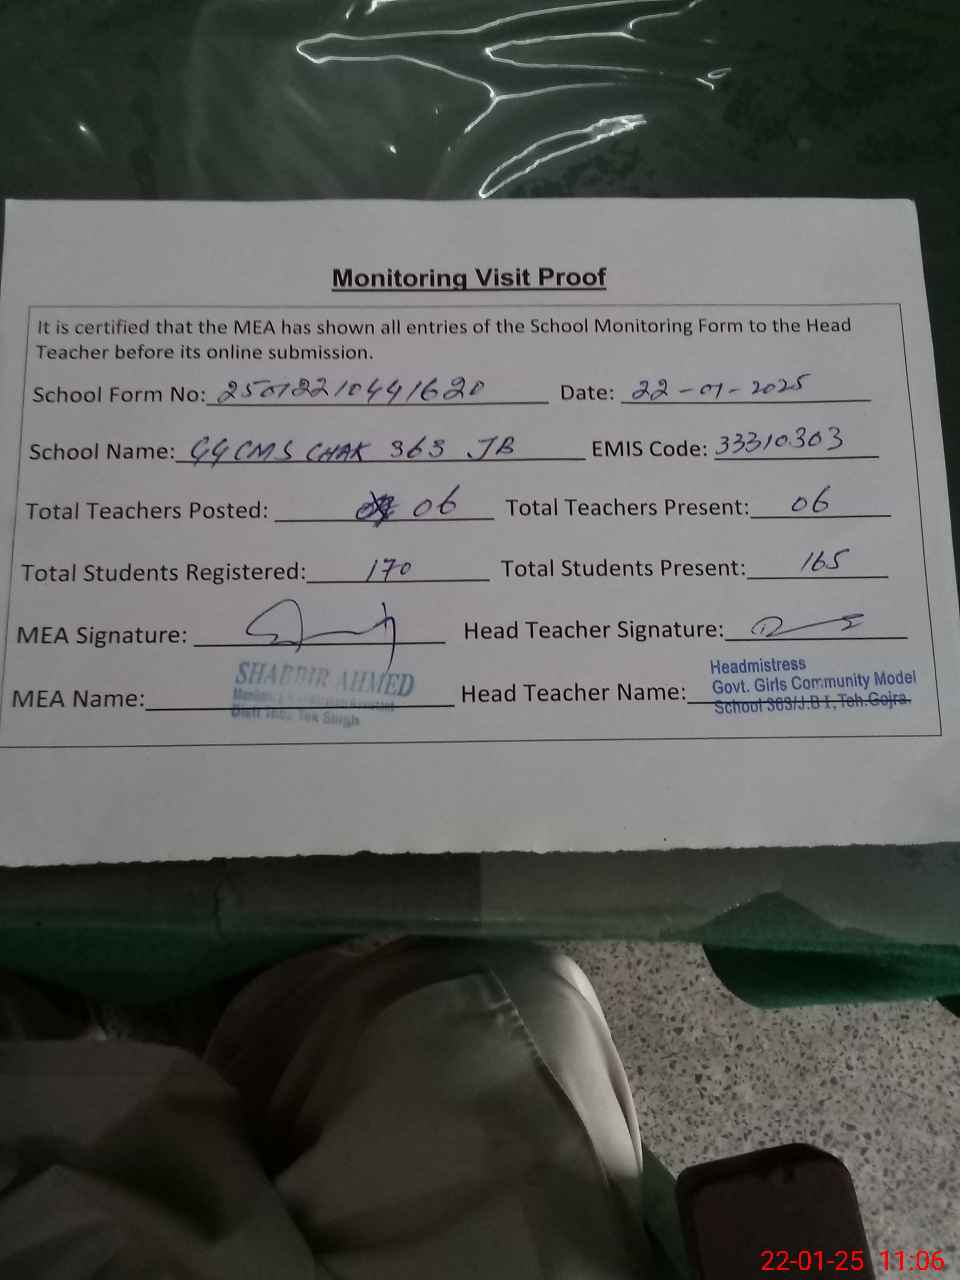 Monitoring Visit Proof
It is certified that the MEA has shown all entries of the School Monitoring Form to the Head
Teacher before its online submission.
School Form No: 25012210441620 Date: 22-01-2025
School Name: GGCMS CHAK 363 JB EMIS Code: 33310303
Total Teachers Posted: 06 Total Teachers Present: 06
Total Students Registered: 170 Total Students Present: 165
MEA Signature: Head Teacher Signature:
MEA Name: SHABBIR AHMED Head Teacher Name: Headmistress
Govt. Girls Community Model
School 363/J.B I, Teh.Gojra.
Tek Singh
22-01-25 11:06